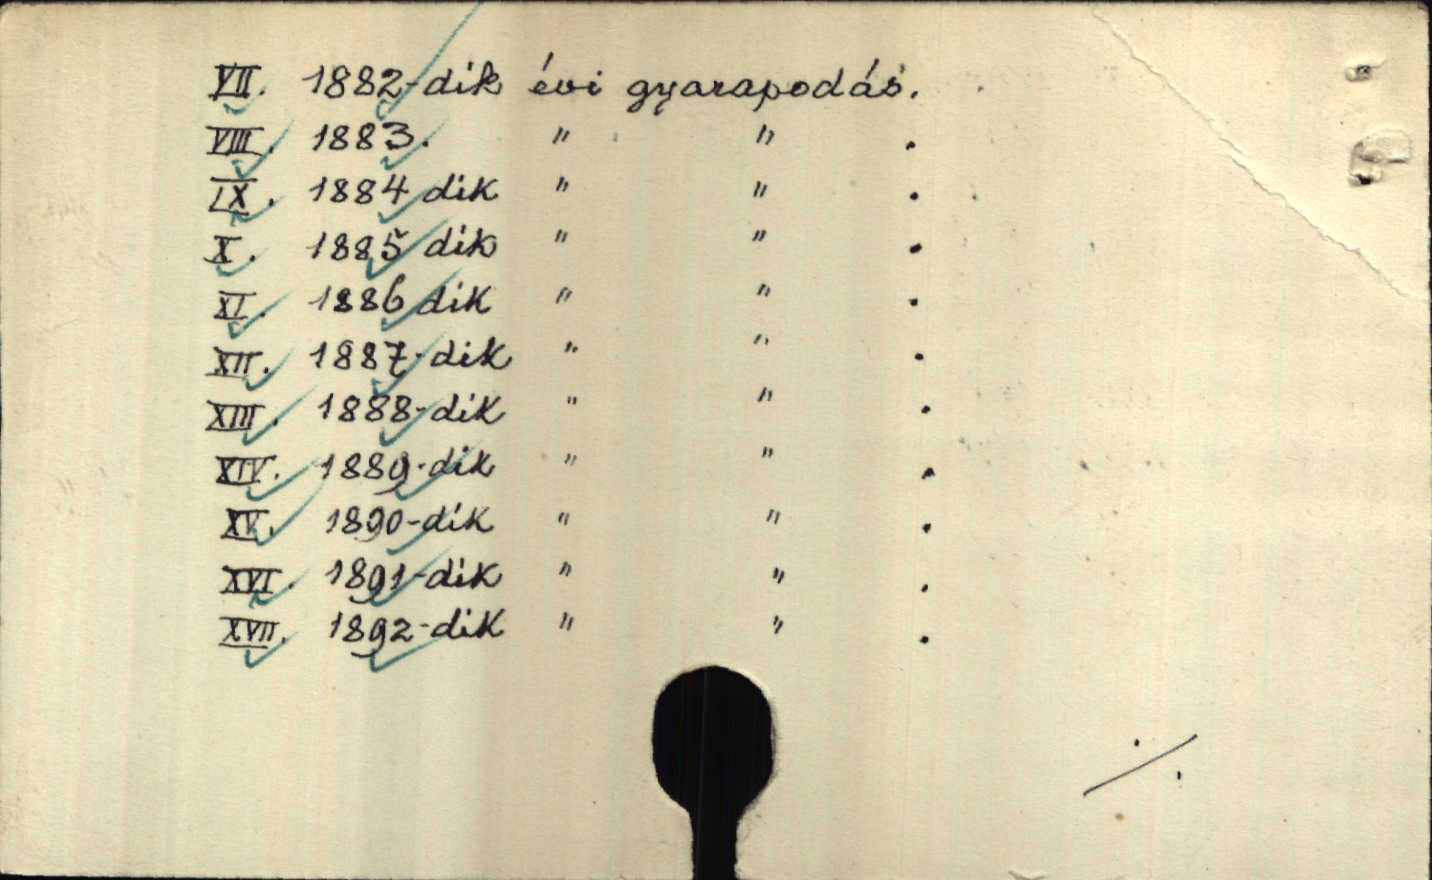 VII. 1882-dik évi gyarapodás.
VIII. 1883. " " .
IX. 1884 dik " " .
X. 1885 dik " " .
XI. 1886 dik " " .
XII. 1887-dik " " .
XIII. 1888-dik " " .
XIV. 1889-dik " " .
XV. 1890-dik " " .
XVI. 1891-dik " " .
XVII. 1892-dik " " .
./.